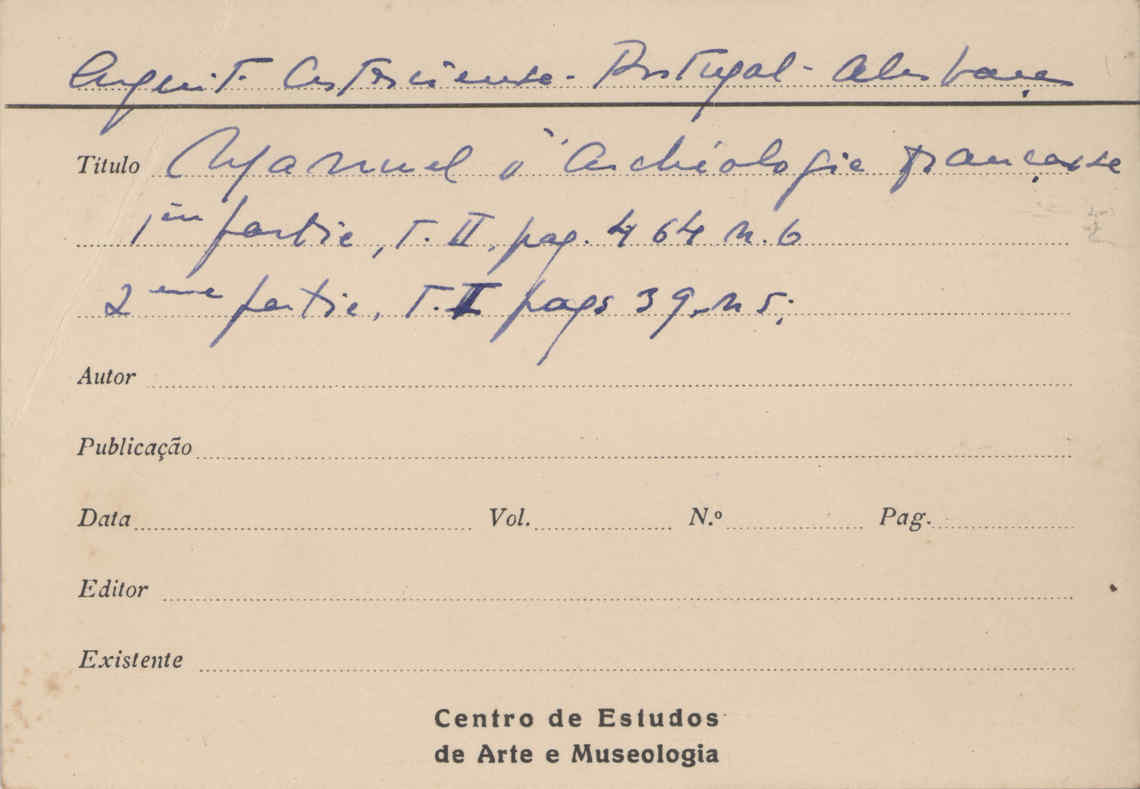 Arquit. Cisterciense - Portugal - Alcobaça
Titulo Manuel d'Archéologie française
1ère partie, T. II, pag. 464 n. 6
2eme partie, T. I pags 39, n 5;
Autor
Publicação
Data Vol. N.º Pag.
Editor
Existente
Centro de Estudos
de Arte e Museologia